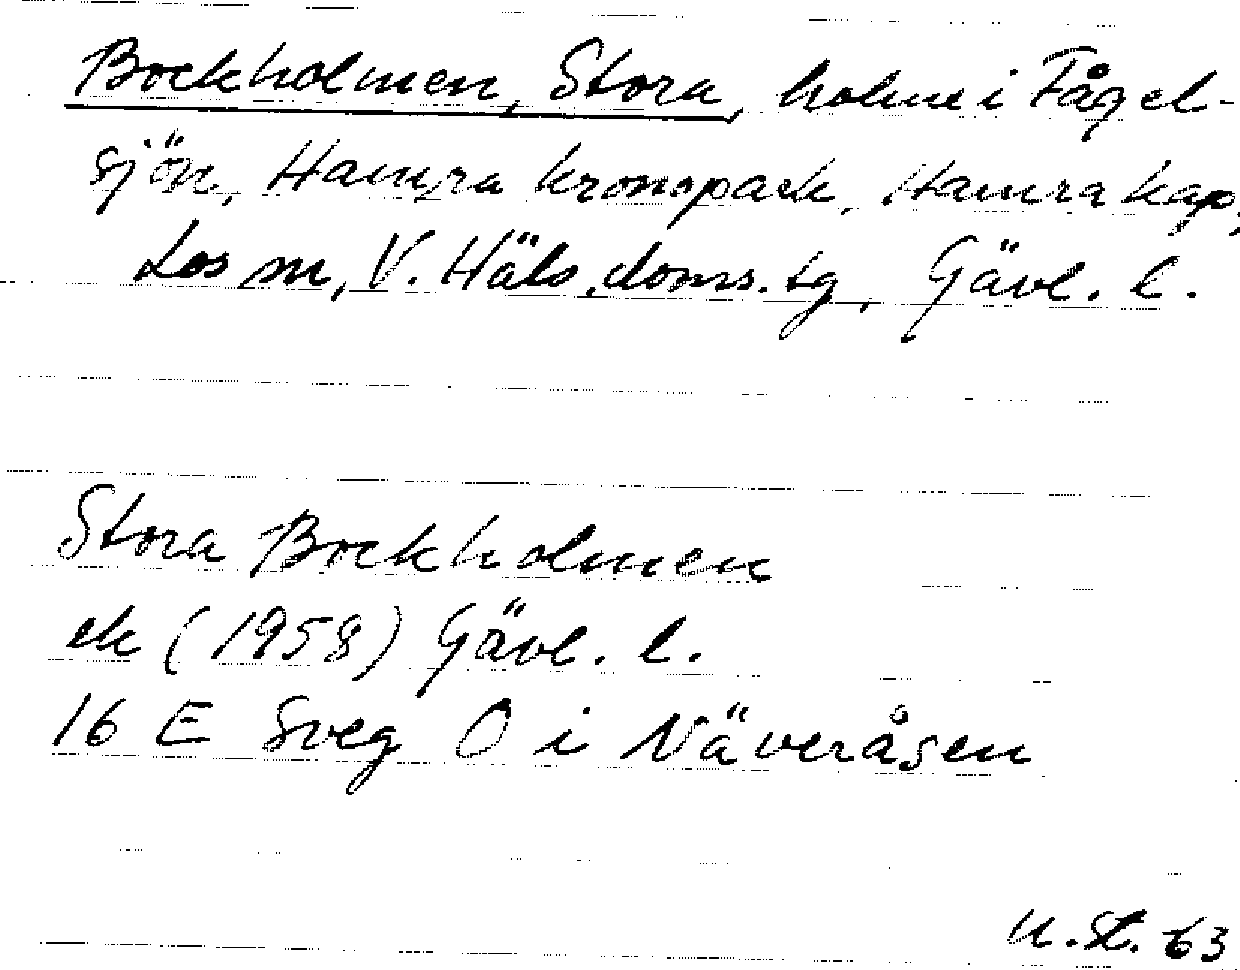 Bockholmen, Stora, holme i Fågel-
sjön, Hamra kronopark, Hamra kap,
Los sn, V. Häls. doms. tg, Gävl. l.
Stora Bockholmen
ek (1958) Gävl. l.
16 E Sveg O i Näveråsen
U.St. 63